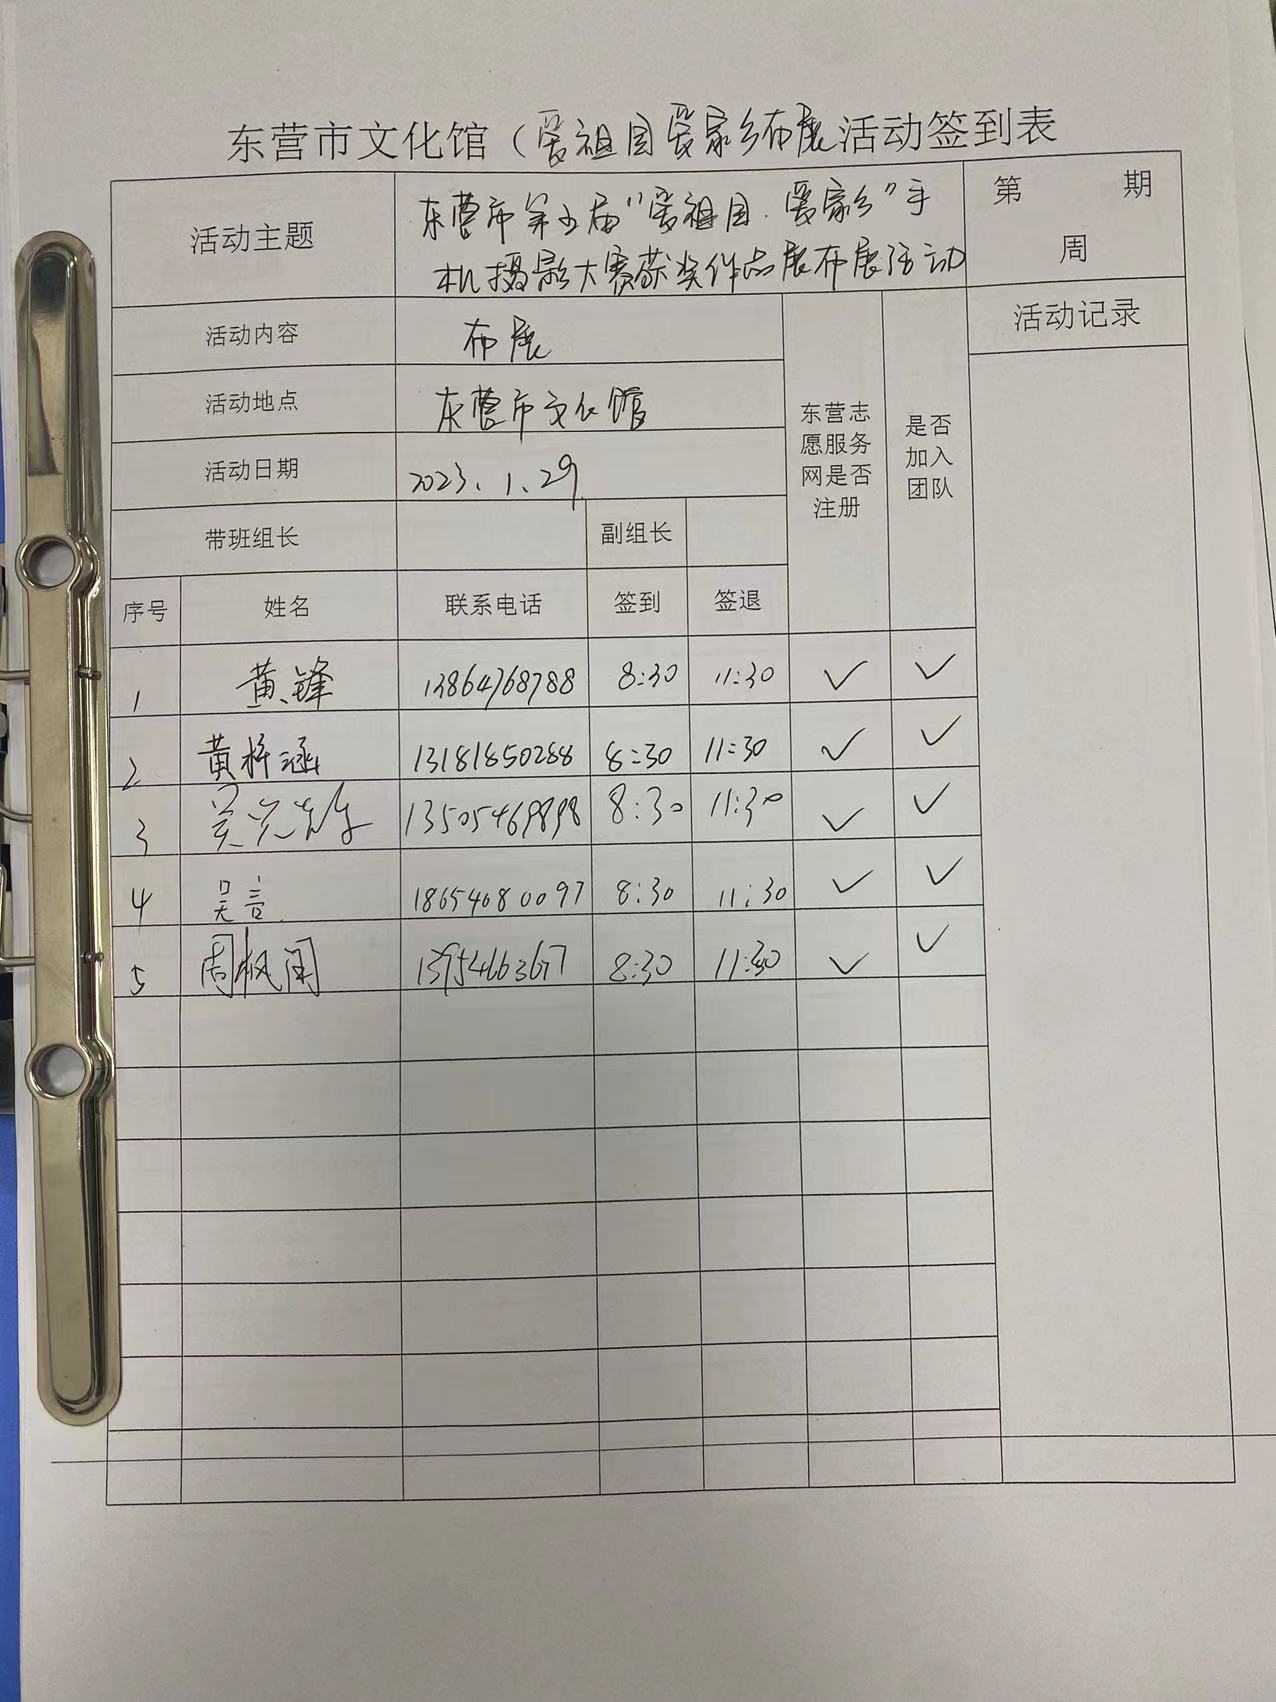 东营市文化馆（爱祖国爱家乡布展活动签到表
活动主题 东营市第五届“爱祖国.爱家乡”手机摄影大赛获奖作品展布展活动 第 期
周
活动内容 布展 东营志愿服务网是否注册 是否加入团队 活动记录
活动地点 东营市文化馆
活动日期 2023.1.29.
带班组长 副组长
序号 姓名 联系电话 签到 签退
1 黄锋 13864768788 8:30 11:30 ✓ ✓
2 黄梓涵 13181850288 8:30 11:30 ✓ ✓
3 13505469898 8:30 11:30 ✓ ✓
4 吴言 18654680097 8:30 11:30 ✓ ✓
5 周枫闰 13954663677 8:30 11:30 ✓ ✓